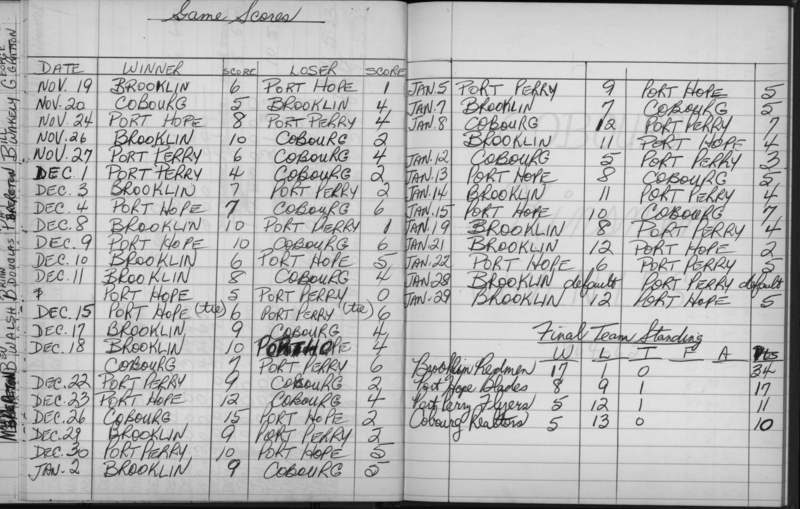 Game Scores
DATE WINNER SCORE LOSER SCORE
NOV. 19 BROOKLIN 6 PORT HOPE 1
NOV. 20 COBOURG 5 BROOKLIN 4
NOV. 24 PORT HOPE 8 PORT PERRY 4
NOV. 26 BROOKLIN 10 COBOURG 2
NOV. 27 PORT PERRY 6 COBOURG 4
DEC. 1 PORT PERRY 4 COBOURG 2
DEC. 3 BROOKLIN 7 PORT PERRY 2
DEC. 4 PORT HOPE 7 COBOURG 6
DEC. 8 BROOKLIN 10 PORT PERRY 1
DEC. 9 PORT HOPE 10 COBOURG 6
DEC. 10 BROOKLIN 6 PORT HOPE 5
DEC. 11 BROOKLIN 8 COBOURG 4
PORT HOPE 5 PORT PERRY 0
DEC. 15 PORT HOPE (tie) 6 PORT PERRY (tie) 6
DEC. 17 BROOKLIN 9 COBOURG 4
DEC. 18 BROOKLIN 10 PORT HOPE 4
COBOURG 7 PORT PERRY 6
DEC. 22 PORT PERRY 9 COBOURG 2
DEC. 23 PORT HOPE 12 COBOURG 4
DEC. 26 COBOURG 15 PORT HOPE 2
DEC. 29 BROOKLIN 9 PORT PERRY 2
DEC. 30 PORT PERRY 10 PORT HOPE 5
JAN. 2 BROOKLIN 9 COBOURG 5
JAN. 5 PORT PERRY 9 PORT HOPE 5
JAN. 7 BROOKLIN 7 COBOURG 5
JAN. 8 COBOURG 12 PORT PERRY 7
BROOKLIN 11 PORT HOPE 4
JAN. 12 COBOURG 5 PORT PERRY 3
JAN. 13 PORT HOPE 8 COBOURG 5
JAN. 14 BROOKLIN 11 PORT PERRY 4
JAN. 15 PORT HOPE 10 COBOURG 7
JAN. 19 BROOKLIN 8 PORT PERRY 4
JAN. 21 BROOKLIN 12 PORT HOPE 2
JAN. 22 PORT HOPE 6 PORT PERRY 5
JAN. 28 BROOKLIN default PORT PERRY default
JAN. 29 BROOKLIN 12 PORT HOPE 5
Final Team Standing
W L T F A Pts
Brooklin Redmen 17 1 0 34
Port Hope Blades 8 9 1 17
Port Perry Flyers 5 12 1 11
Cobourg Realtors 5 13 0 10
GEORGE
G. GRATTON
B. WAKELY
BRERETON
B. DOUGLAS
BRIAN
B. WALSH
M. BRERETON